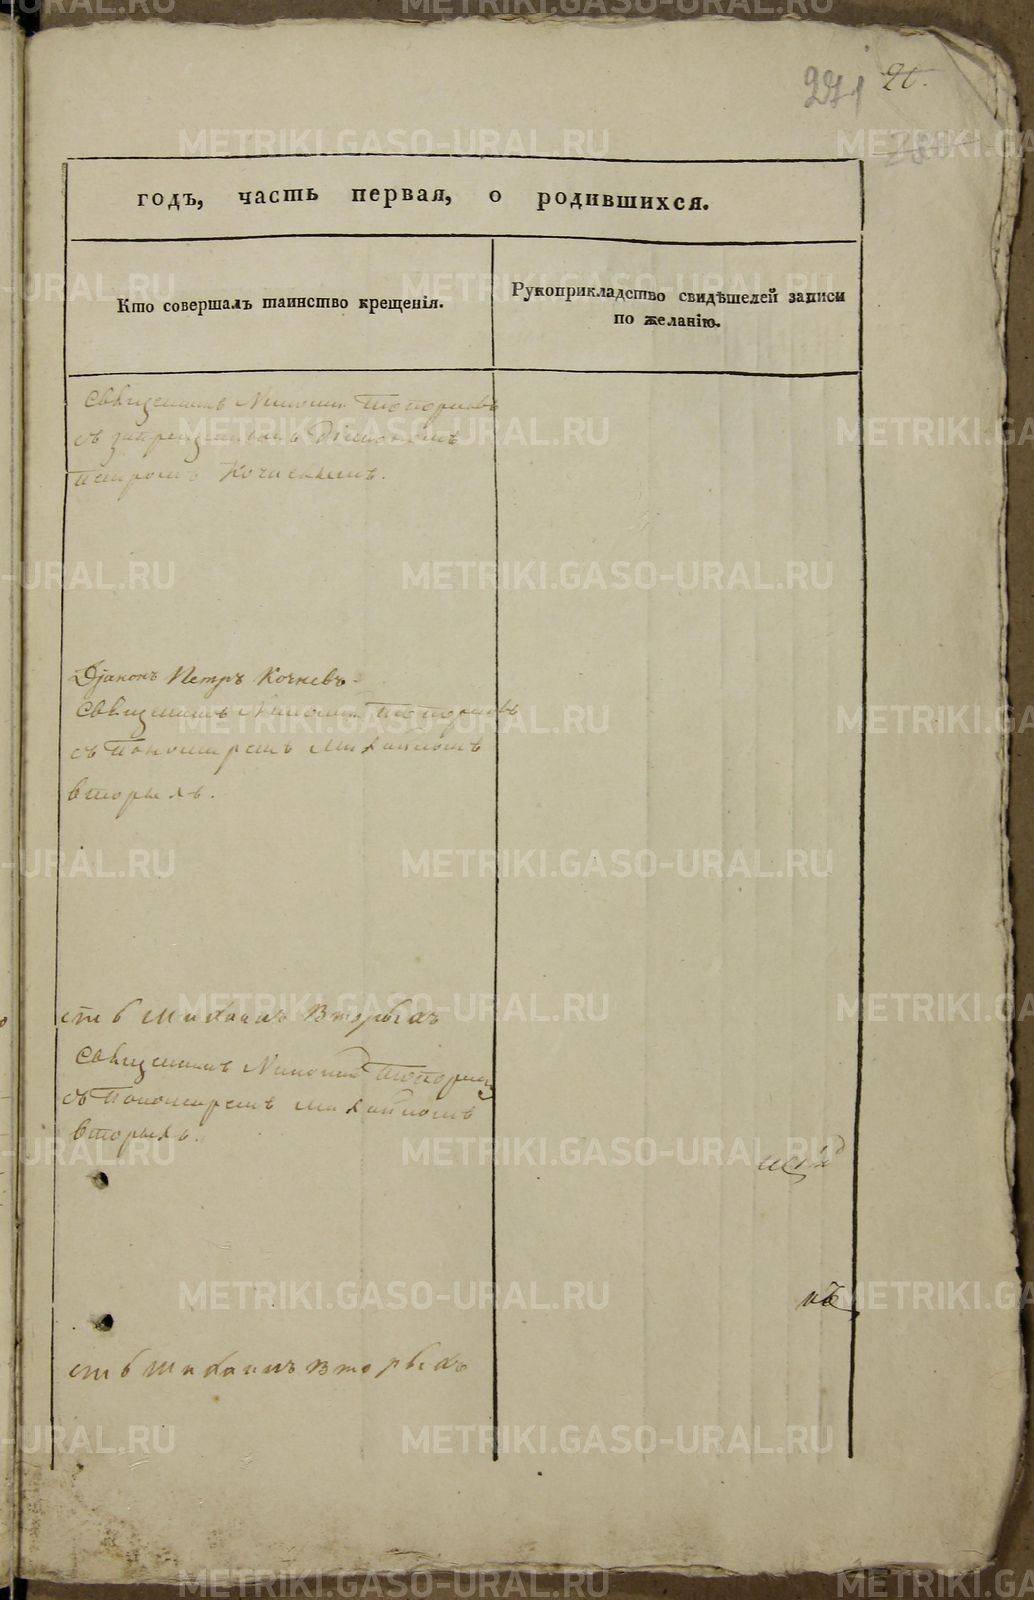 271 20.
280
годъ, часть первая, о родившихся.
Кто совершалъ таинство крещенія.
Рукоприкладство свидѣтелей записи
по желанію.
Священникъ Николай Топорковъ
съ запрещеннымъ Діакономъ
Петромъ Кочневымъ.
Діаконъ Петръ Кочневъ
Священникъ Николай Топорковъ
съ Пономаремъ Михаиломъ
Вторыхъ.
Михаилъ Вторыхъ
Священникъ Николай
съ Пономаремъ Михаиломъ
Вторыхъ.
Михаилъ Вторыхъ
METRIKI.GASO-URAL.RU